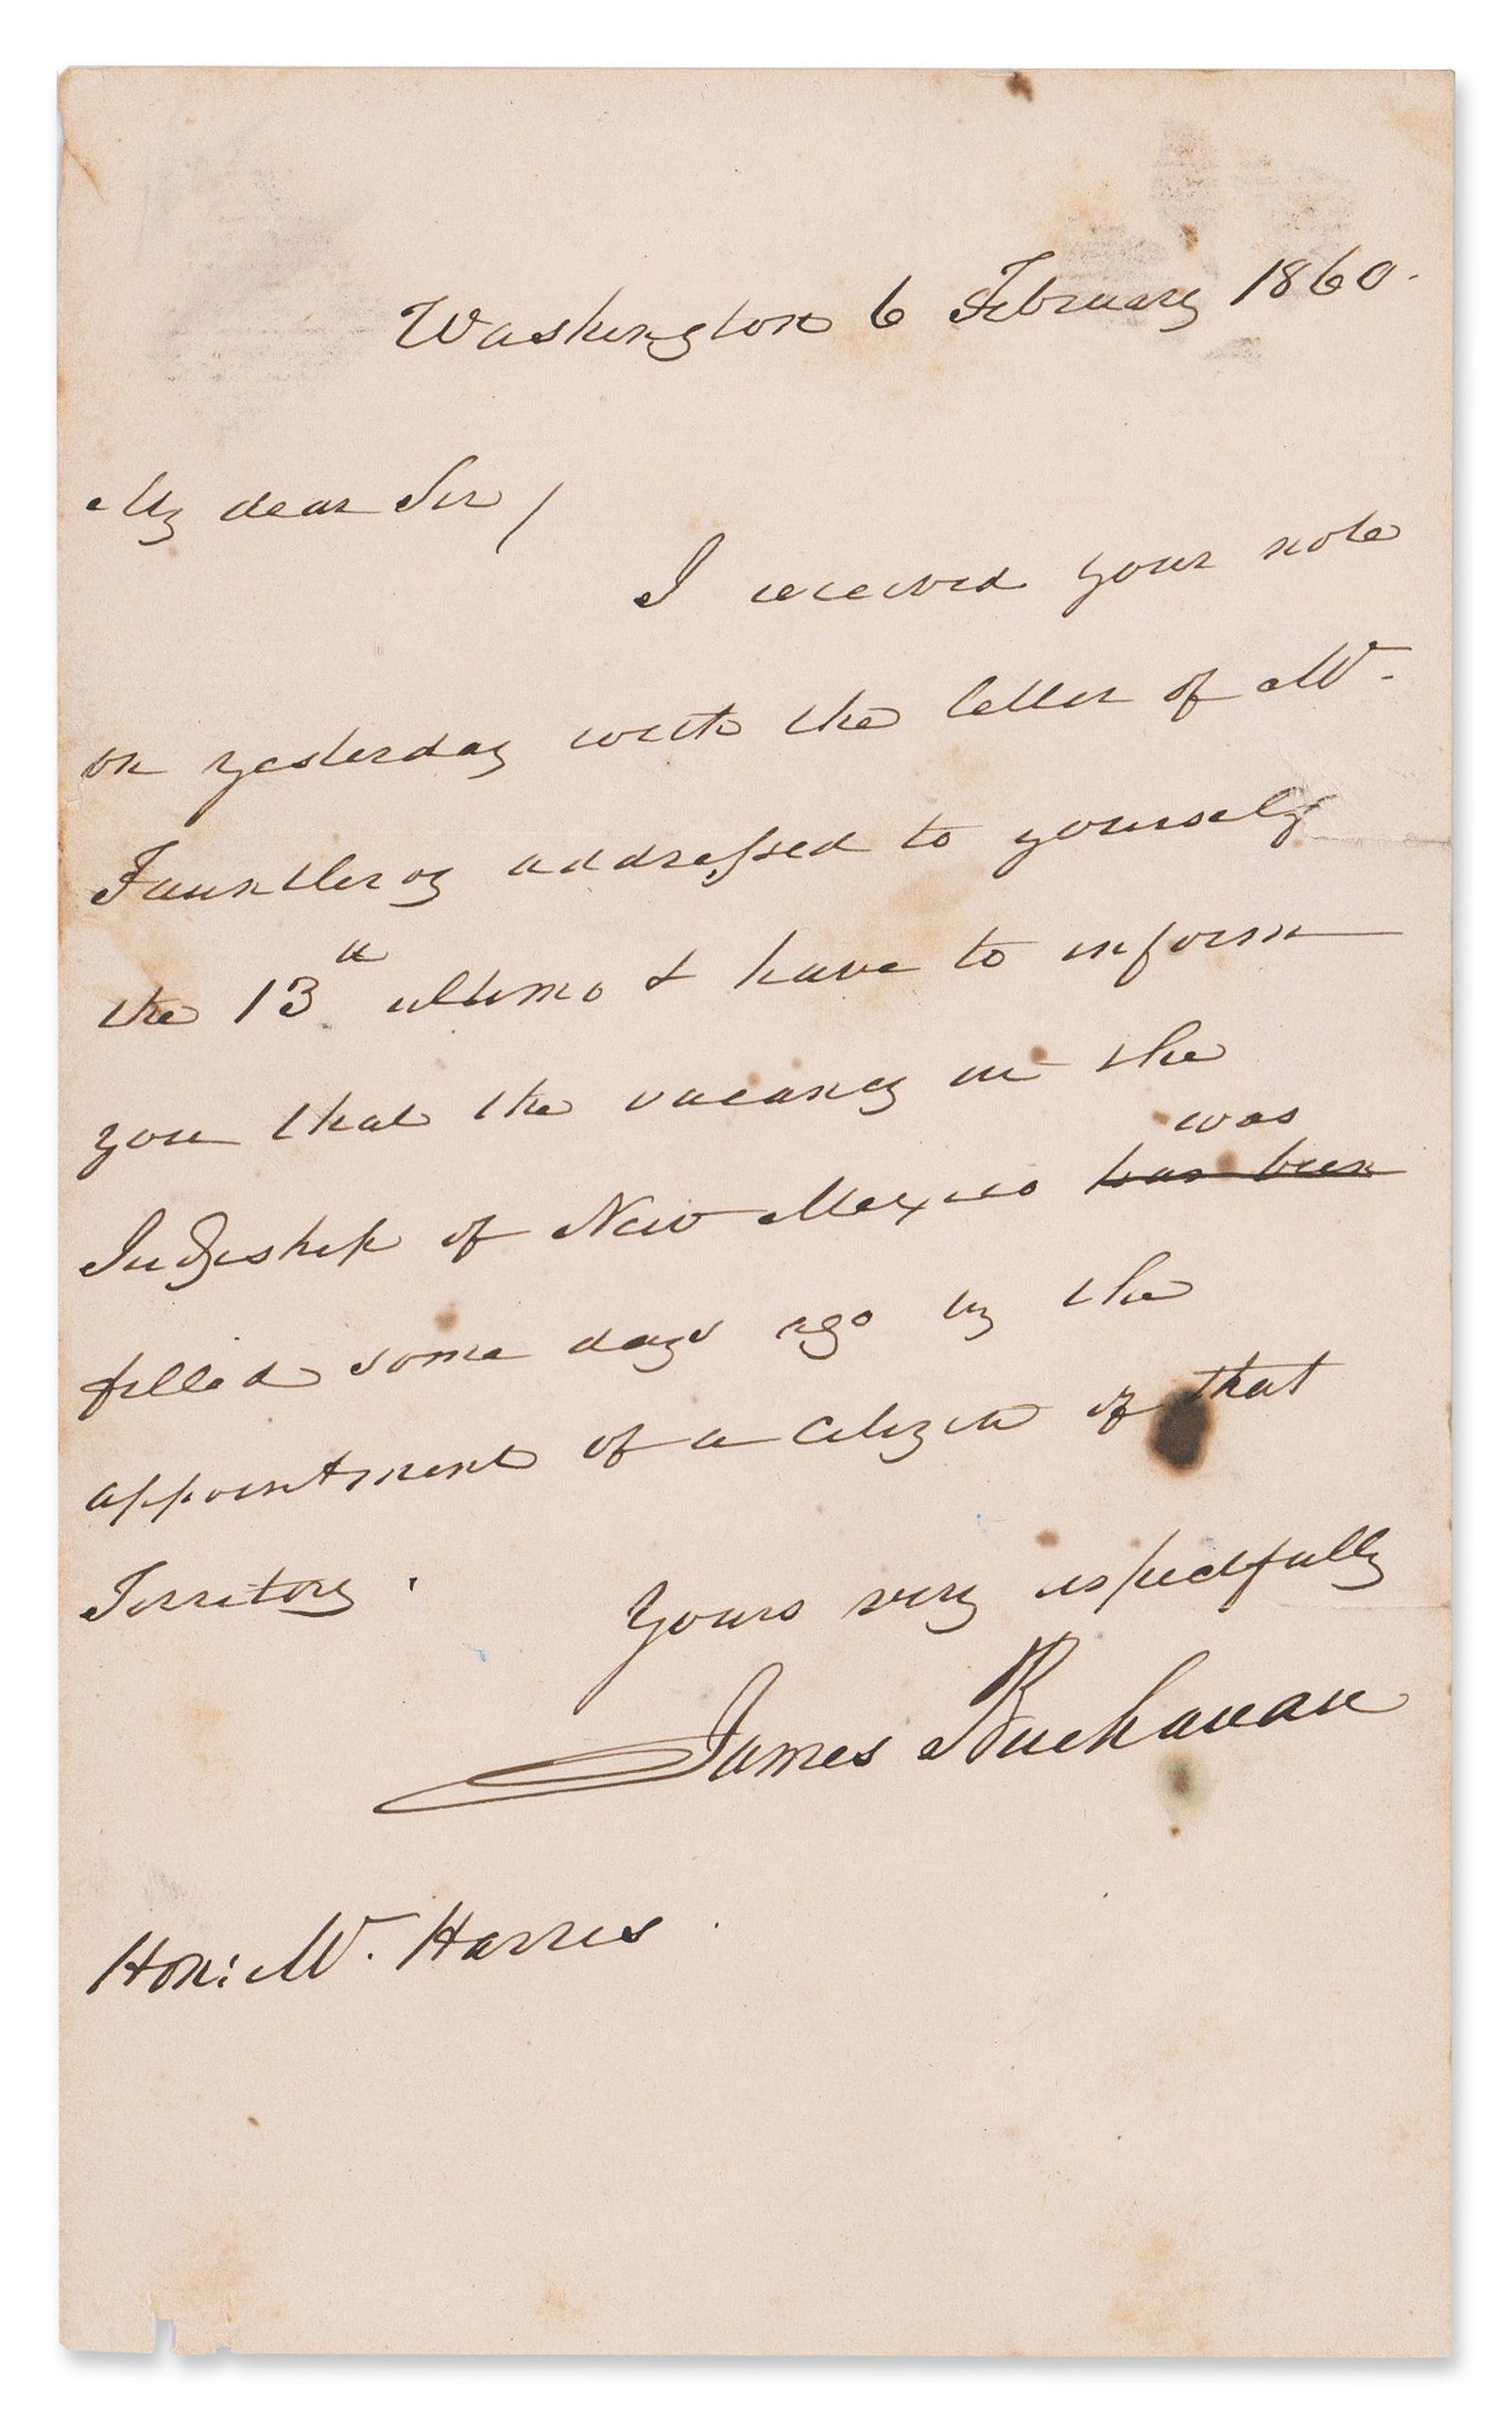 Washington 6 February 1860.
My dear Sir/
I received your note
on yesterday with the letter of Mr.
Fauntleroy addressed to yourself
the 13th ultimo & have to inform
you that the vacancy in the
was
Judgeship of New Mexico ~~has been~~
filled some days ago by the
appointment of a citizen of that
Territory.
Yours very respectfully
James Buchanan
Hon: Mr. Harris